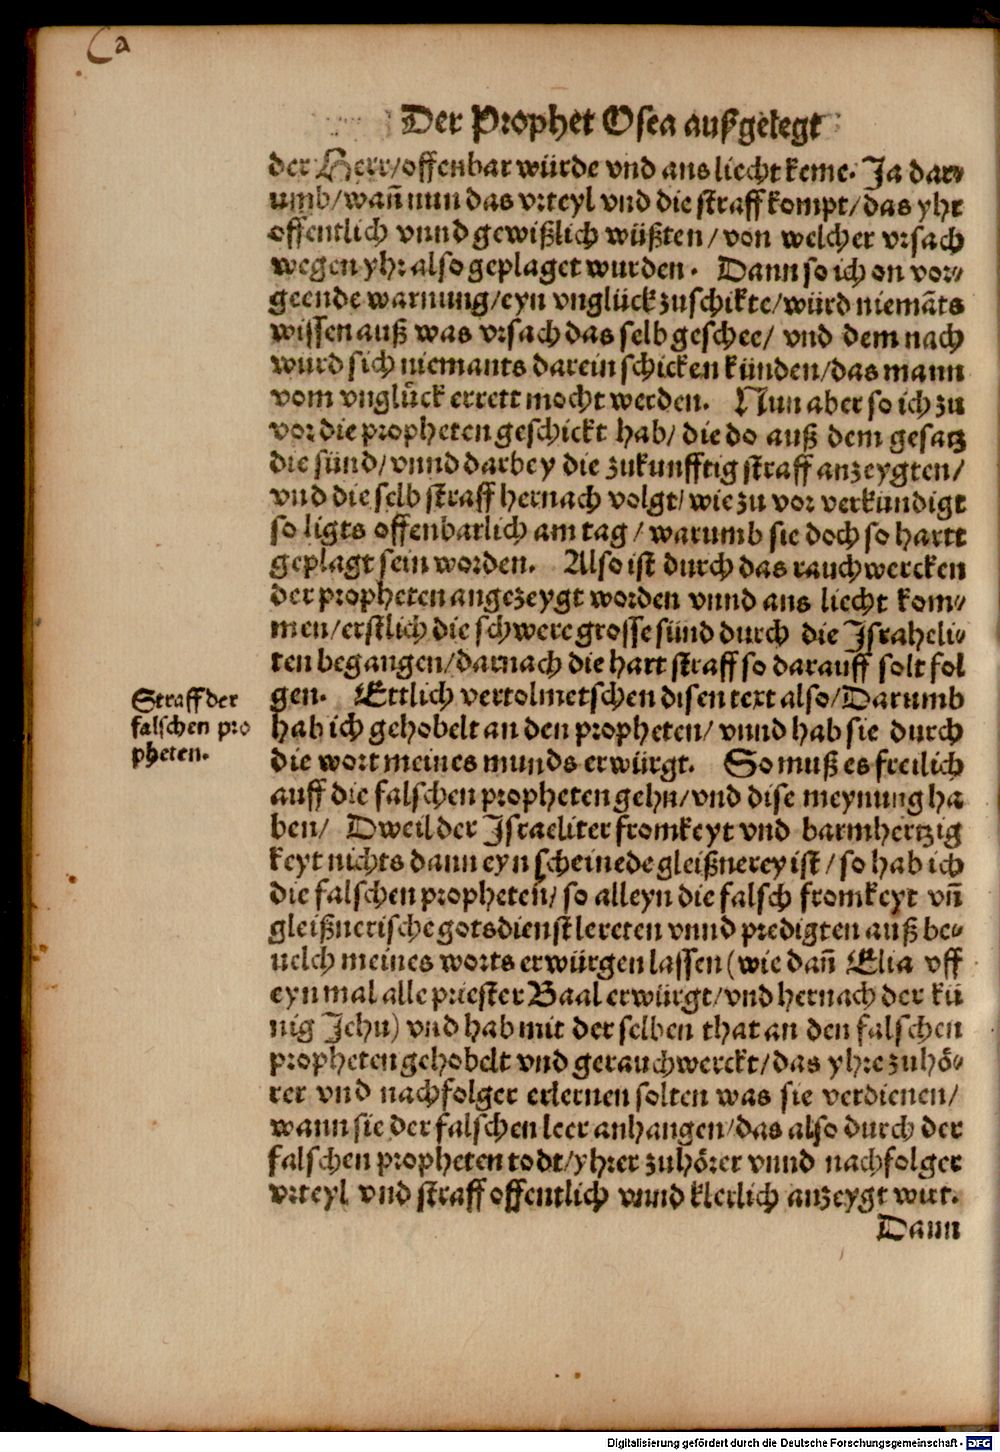 a
Der Prophet Osea außgelegt
der Herr/offenbar würde vnd ans liecht keme. Ja dar⸗
umb/wañ nun das vrteyl vnd die straff kompt/das yhr
offentlich vnnd gewißlich wüßten/von welcher vrsach
wegen yhr also geplaget wurden. Dann so ich on vor⸗
geende warnung/eyn vnglück zuschikte/würd niemāts
wissen auß was vrsach das selb geschee/ vnd dem nach
wurd sich niemants darein schicken künden/das mann
vom vnglück errett mocht werden. Nun aber so ich zu
vor die propheten geschickt hab/ die do auß dem gesatz
die sünd/vnnd darbey die zukunfftig straff anzeygten/
vnd die selb straff hernach volgt/wie zu vor verkundigt
so ligts offenbarlich am tag/warumb sie doch so hartt
geplagt sein worden. Also ist durch das rauchwercken
der propheten angezeygt worden vnnd ans liecht kom⸗
men/erstlich die schwere grosse sünd durch die Israheli⸗
ten begangen/darnach die hart straff so darauff solt fol
gen. Ettlich vertolmetschen disen text also/Darumb
hab ich gehobelt an den propheten/vnnd hab sie durch
die wort meines munds erwürgt. So muß es freilich
auff die falschen propheten gehn/vnd dise meynung ha
ben/ Dweil der Israeliter fromkeyt vnd barmhertzig
keyt nichts dann eyn scheinede gleißnerey ist/so hab ich
die falschen propheten/so alleyn die falsch fromkeyt vñ
gleißnerische gotsdienst lereten vnnd predigten auß be⸗
uelch meines worts erwürgen lassen (wie dañ Elia vff
eyn mal alle priester Baal erwürgt/vnd hernach der kü
nig Jehu) vnd hab mit der selben that an den falschen
propheten gehobelt vnd gerauchwerckt/das yhre zuhö⸗
rer vnd nachfolger erlernen solten was sie verdienen/
wann sie der falschen leer anhangen/das also durch der
falschen propheten todt/yhrer zuhörer vnnd nachfolger
vrteyl vnd straff offentlich vnnd klerlich anzeygt wur.
Dann
Straff der
falschen pro
pheten.
Digitalisierung gefördert durch die Deutsche Forschungsgemeinschaft - DFG